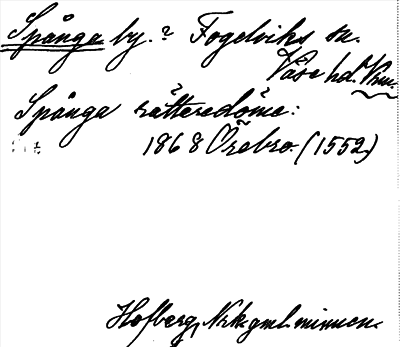 Spånga by.? Fogelviks sn.
Väse hd. Vrm.
Spånga rätteredöme:
1868 Örebro. (1552)
Hofberg, Nrk. gml. minnen.